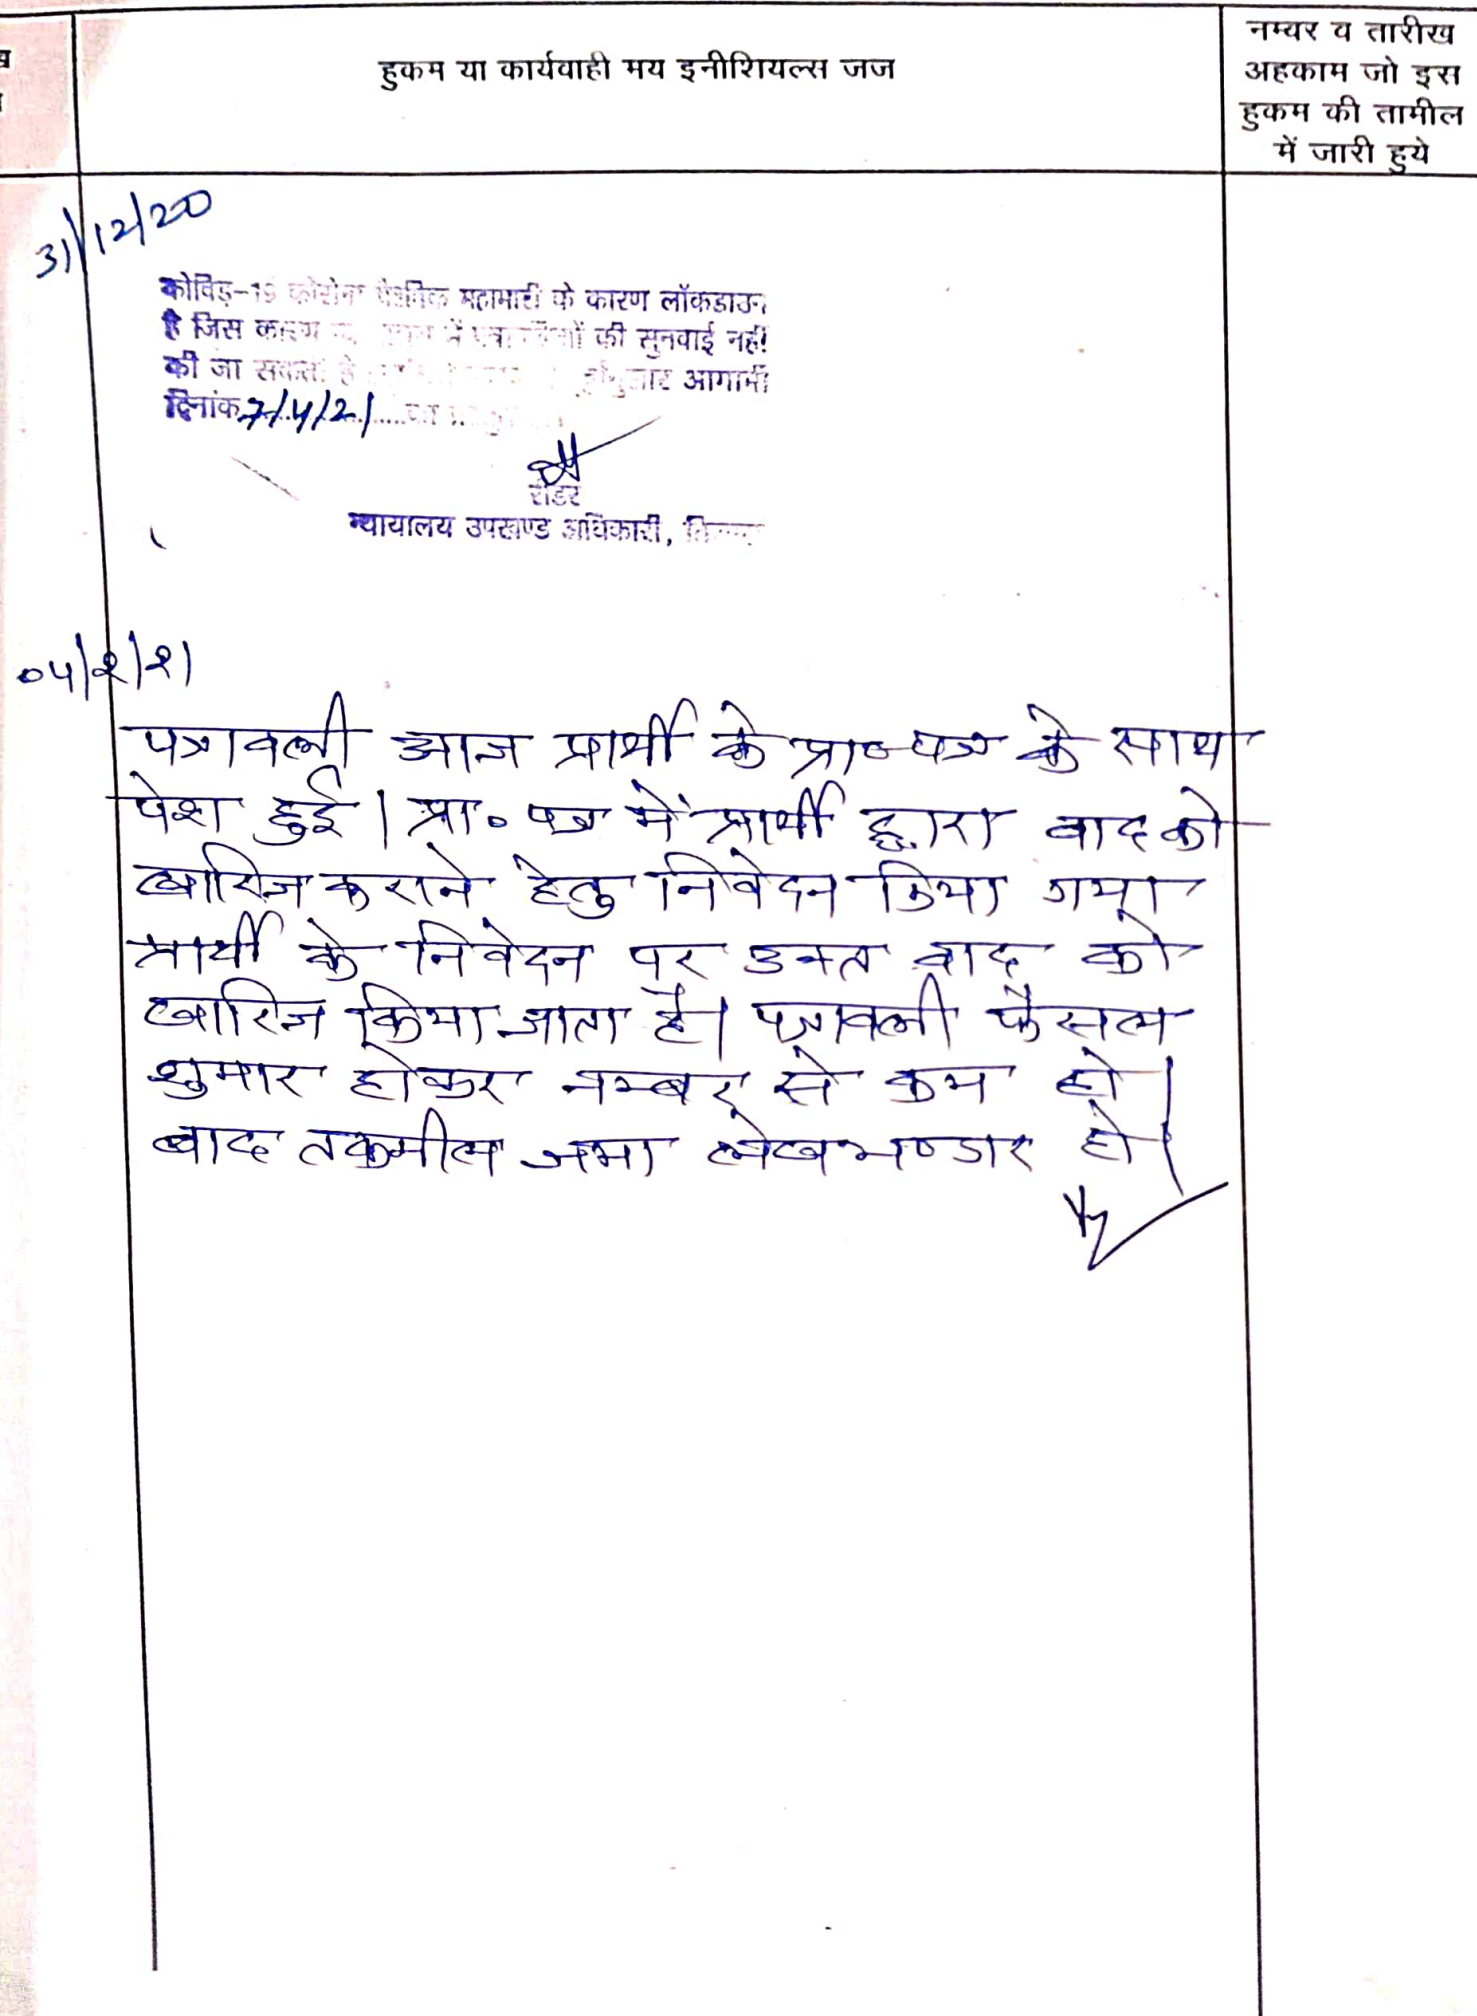 हुकम या कार्यवाही मय इनीशियल्स जज
नम्वर व तारीख
अहकाम जो इस
हुकम की तामील
में जारी हुये
31/12/20
कोविड़-19 कोरोना वैश्विक महामारी के कारण लॉकडाउन
है जिस कारण में की सुनवाई नहीं
की जा सकती है आगामी
दिनांक 7/4/21
रीडर
न्यायालय उपखण्ड अधिकारी,
04/2/21
पत्रावली आज प्रार्थी के प्रा० पत्र के साथ
पेश हुई। प्रा० पत्र में प्रार्थी द्वारा वाद को
खारिज कराने हेतु निवेदन किया गया
प्रार्थी के निवेदन पर उक्त वाद को
खारिज किया जाता है। पत्रावली फैसल
शुमार होकर नम्बर से कम हो।
बाद तकमील जमा लेखभण्डार हो।